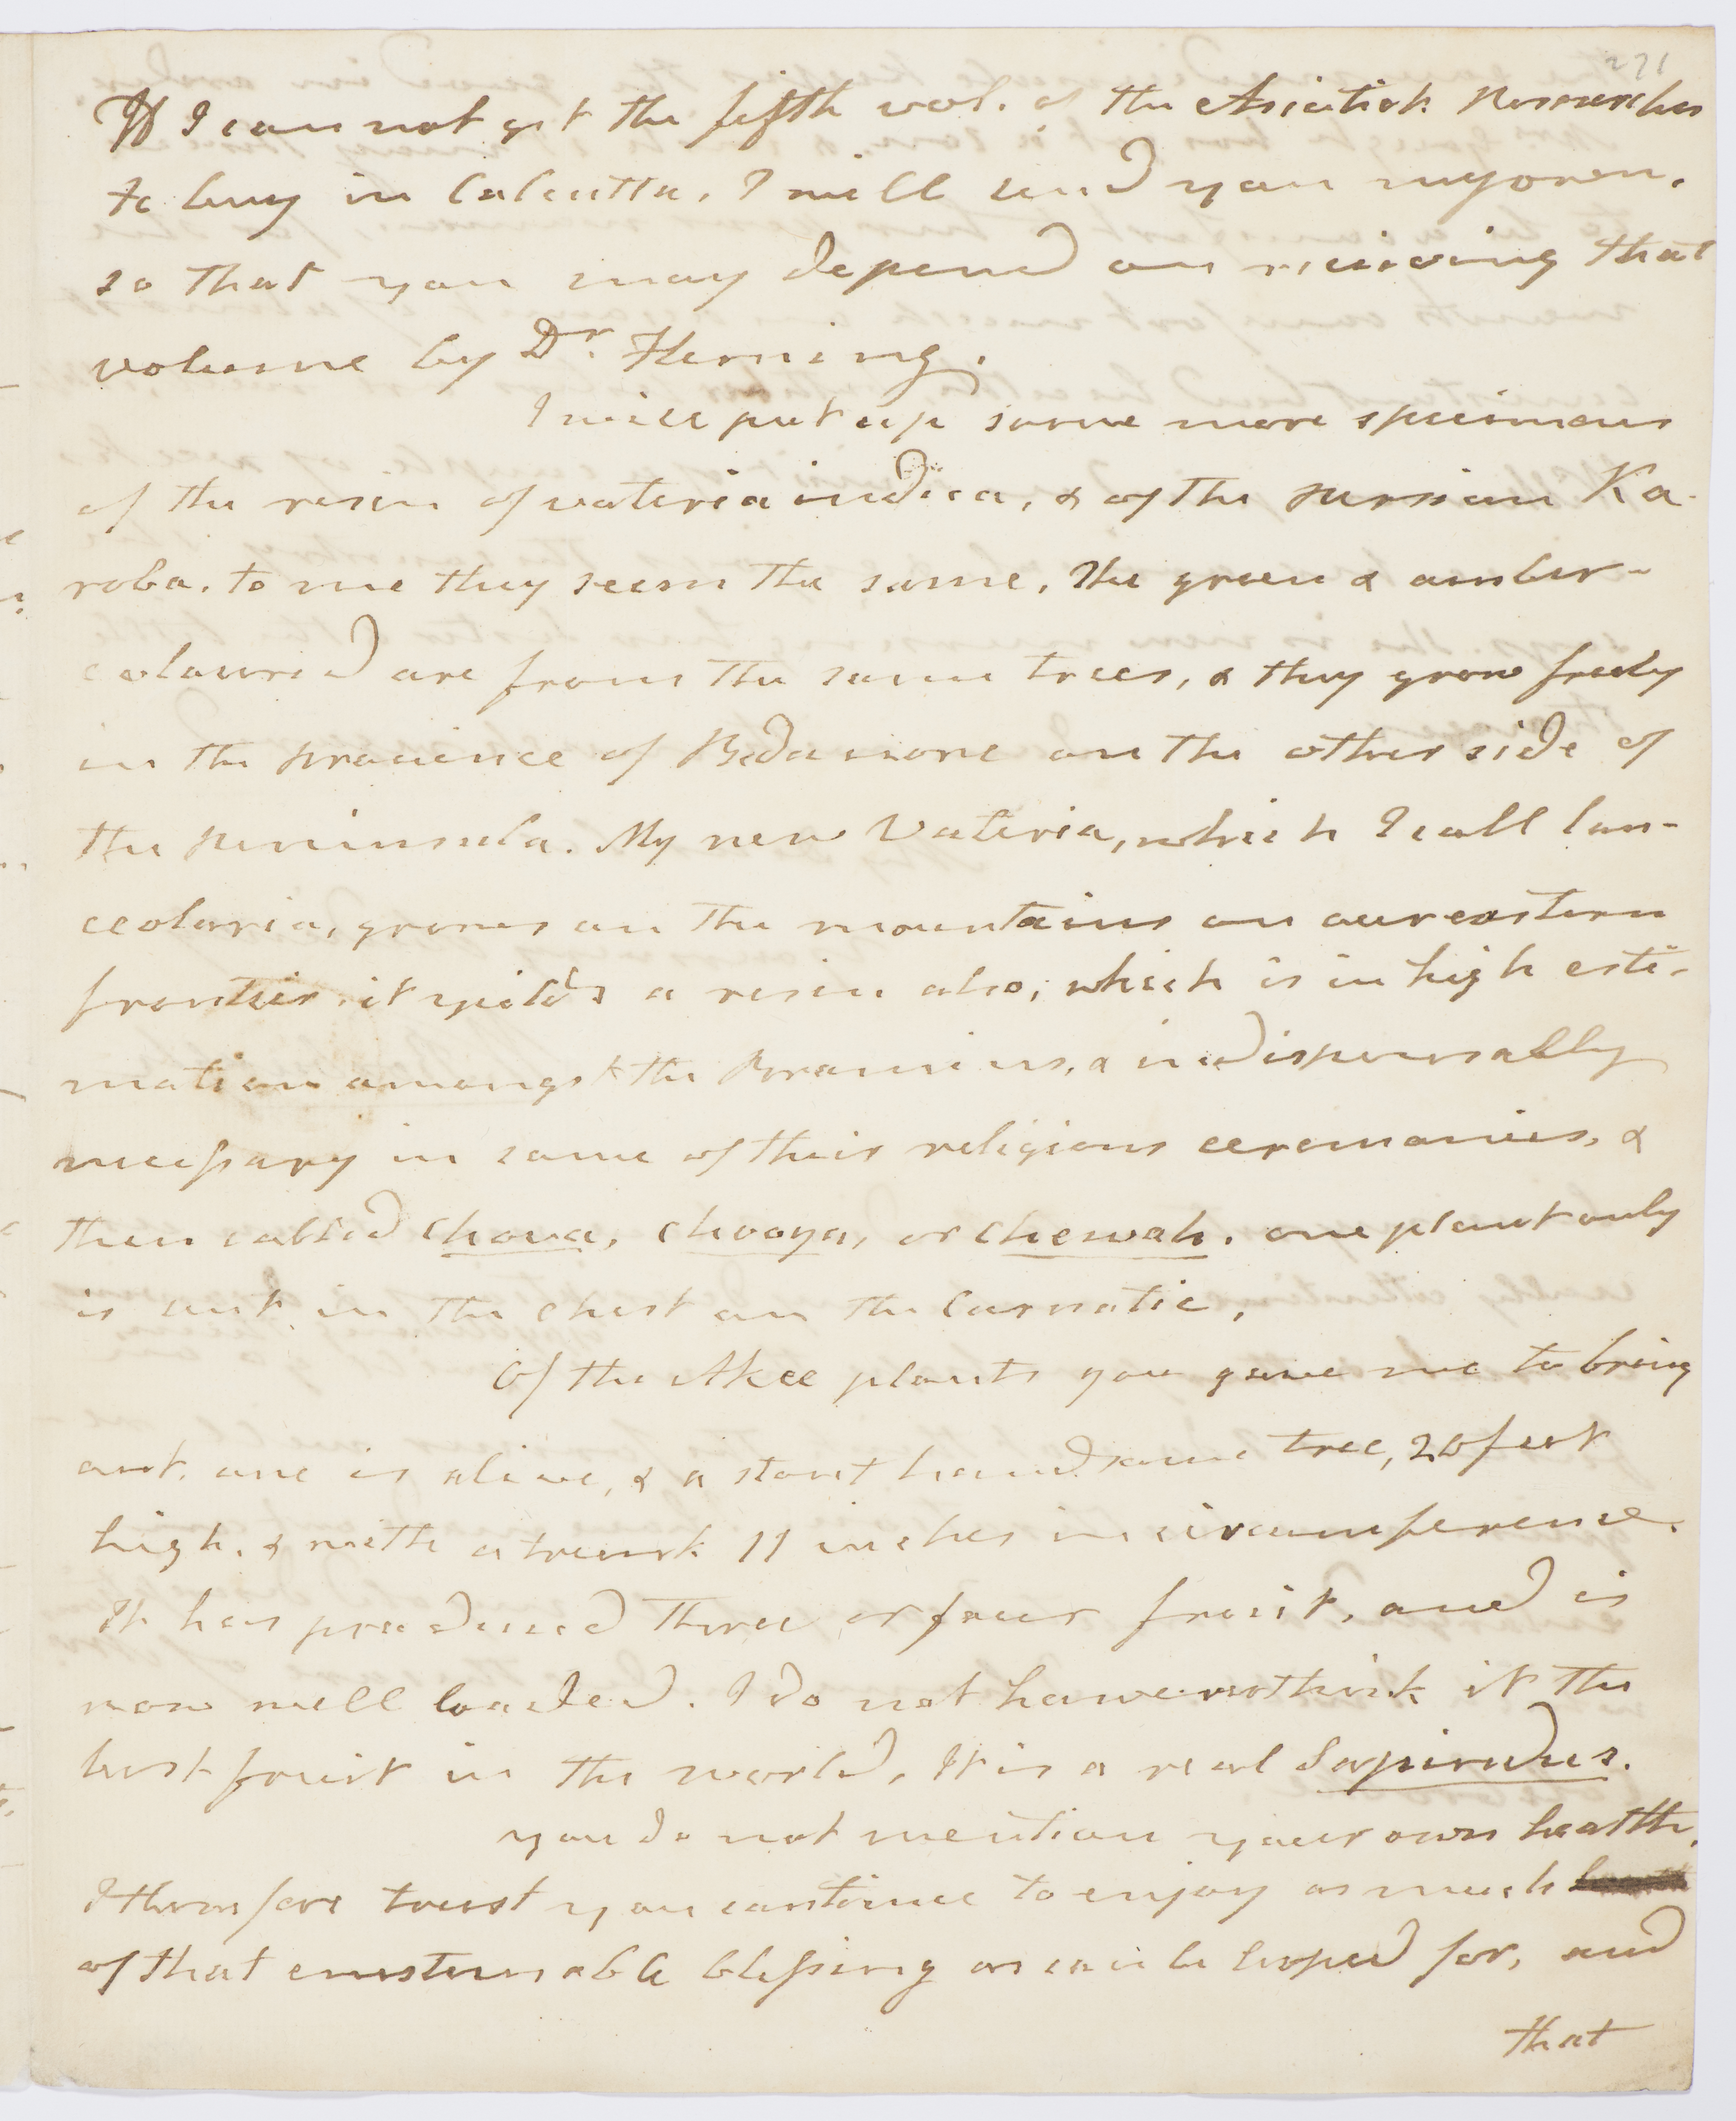 271
If I can not get the fifth vol. of the Asiatick Researches
to buy in Calcutta, I will send you my own,
so that you may depend on receiving that
volume by Dr. Fleming.
I will put up some more specimens
of the resin of vateria indica, & of the persian Ka-
roba. to me they seem the same, the green & amber-
coloured are from the same trees, & they grow freely
in the province of Bedanore on the other side of
the peninsula. My new Vateria, which I call lan-
ceolaria, grows on the mountains on our eastern
frontier. it yields a resin also, which is in high esti-
mation amongst the Bramins, & indispensably
necessary in some of their religious ceremonies, &
then called chova, chooya, or chewah. one plant only
is sent in the chest on the Carnatic.
Of the Akee plants you gave me to bring
out, one is alive, & a stout handsome tree, 20 feet
high, & with a trunk 11 inches in circumference.
It has produced three or four fruit, and is
now well loaded. I do not however think it the
best fruit in the world, It is a real Sapindus.
you do not mention your own health,
I therefore trust you continue to enjoy as much
of that enestemable blessing as can be hoped for, and
that